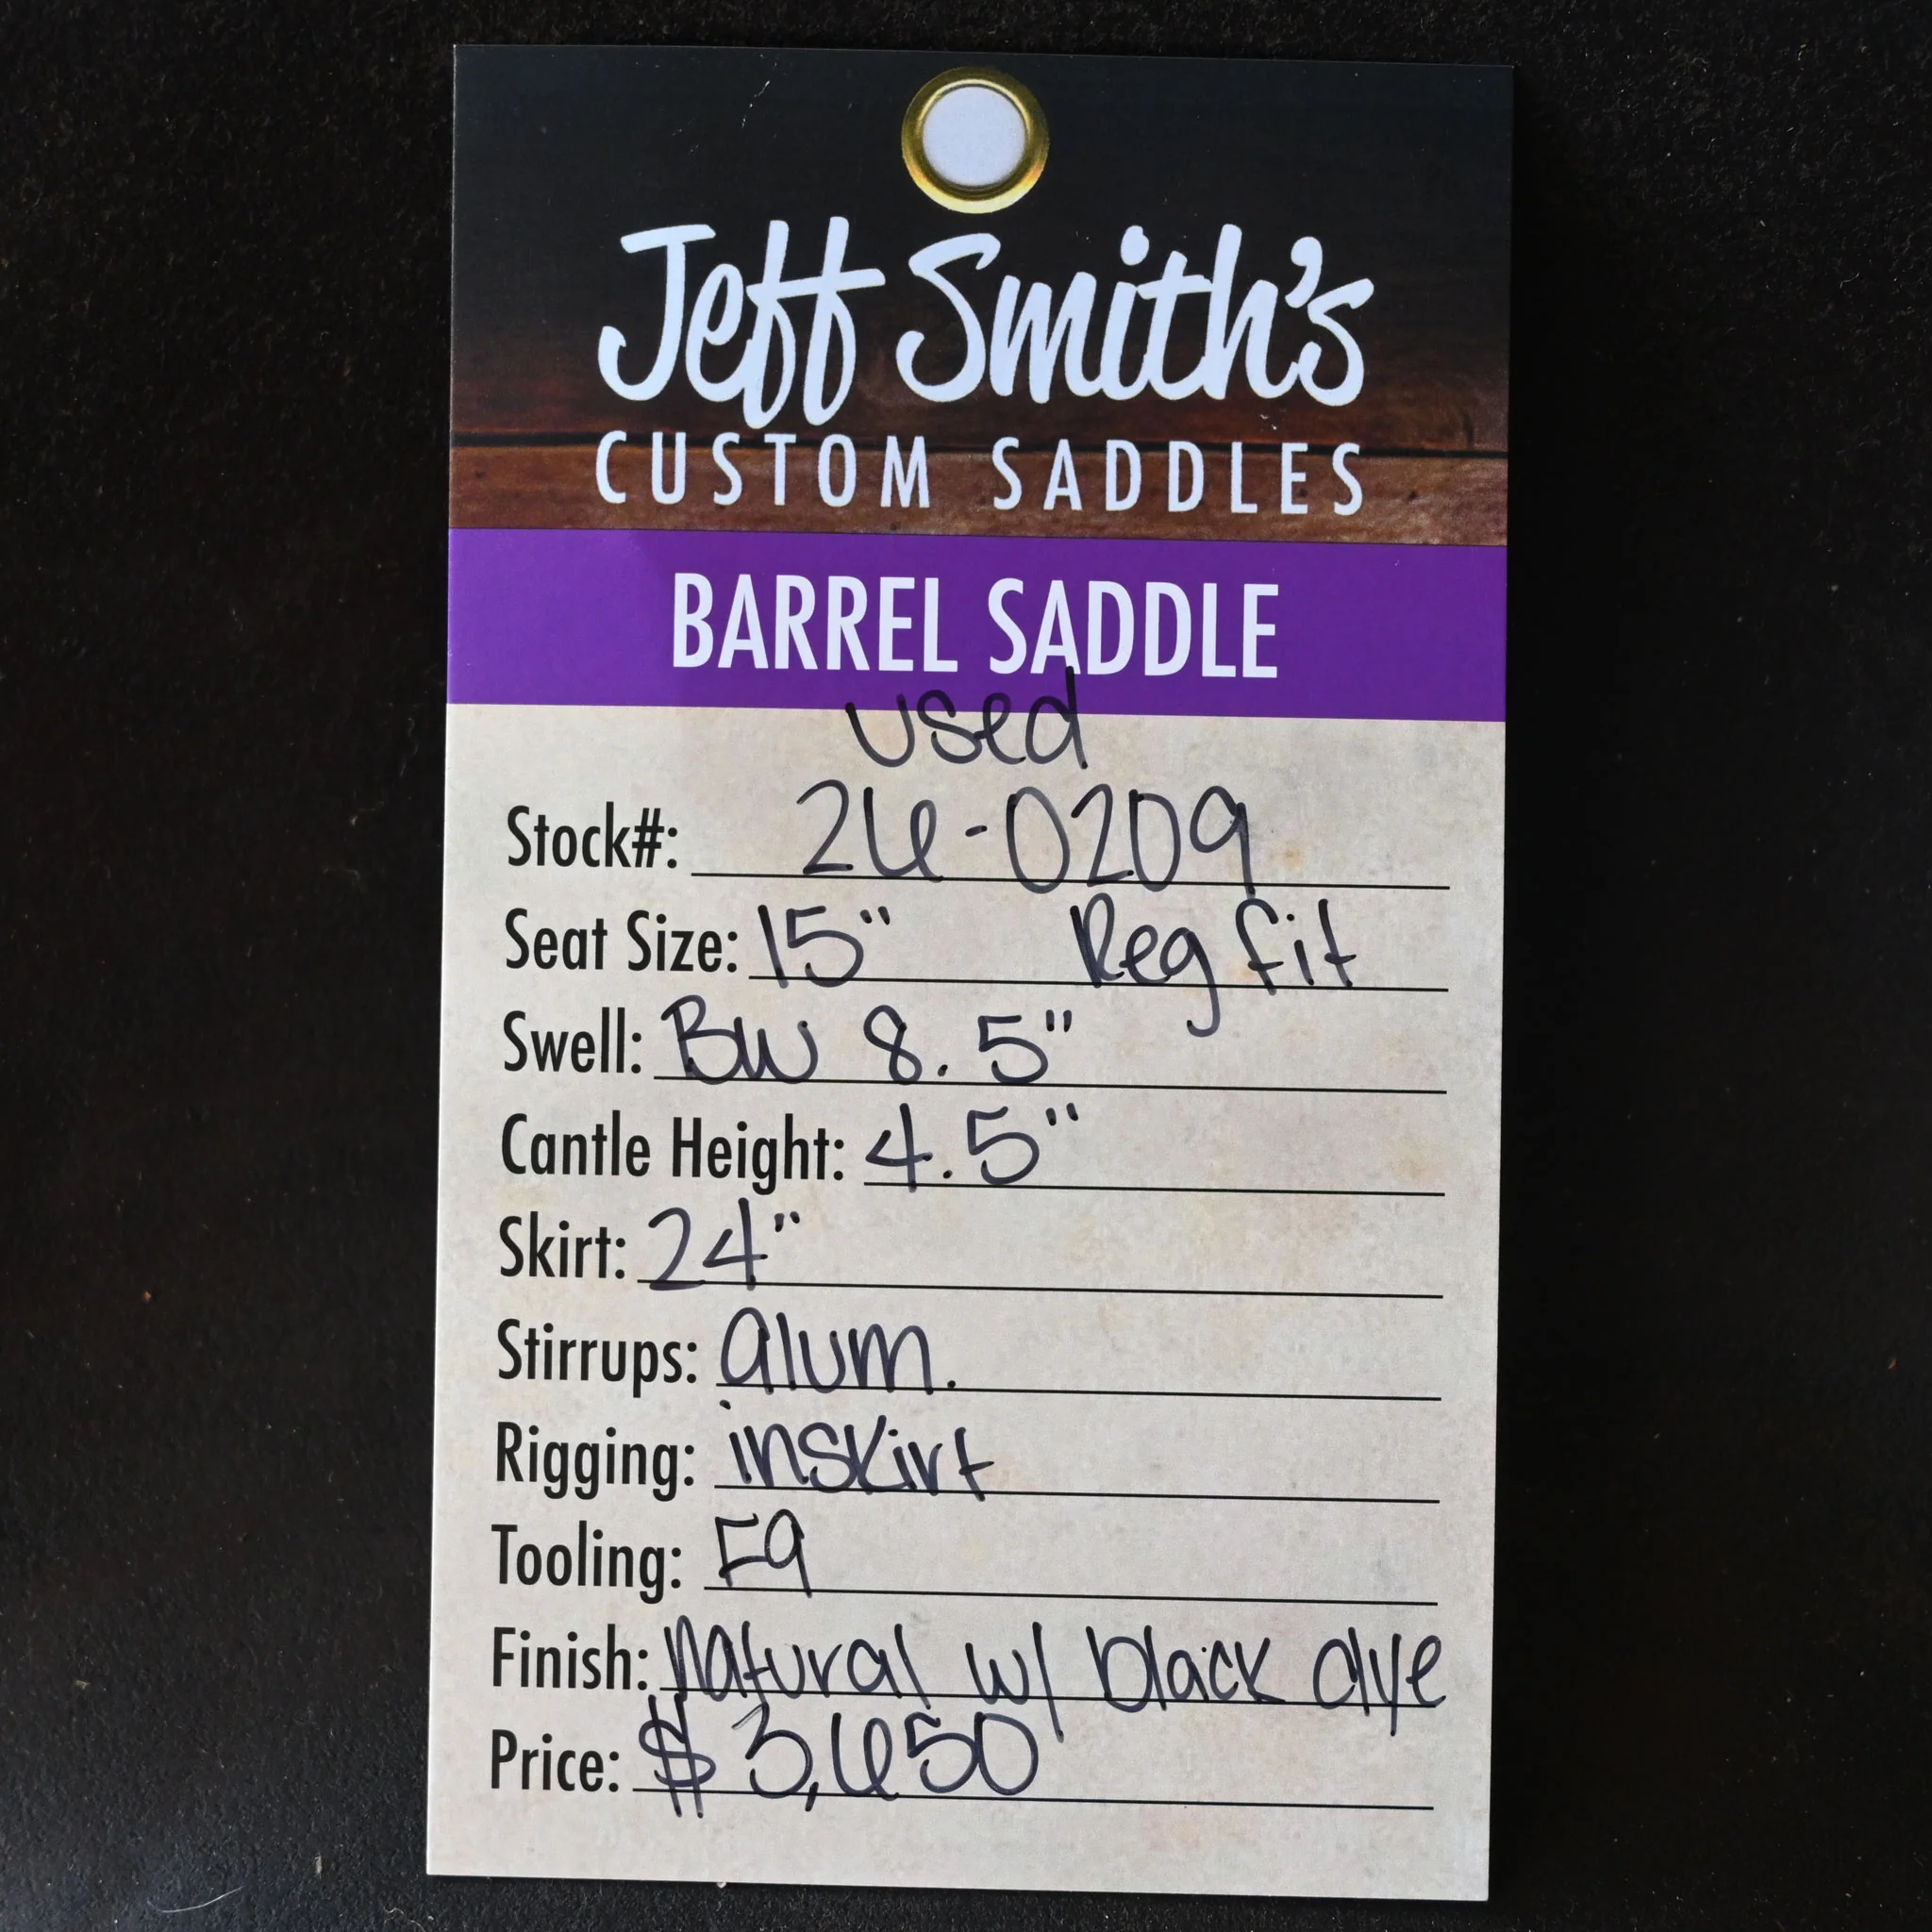 Jeff Smith's
CUSTOM SADDLES
BARREL SADDLE
used
Stock#: 26-0209
Seat Size: 15" Reg fit
Swell: BW 8.5"
Cantle Height: 4.5"
Skirt: 24"
Stirrups: alum.
Rigging: inskirt
Tooling: F9
Finish: natural w/ black dye
Price: $3,650